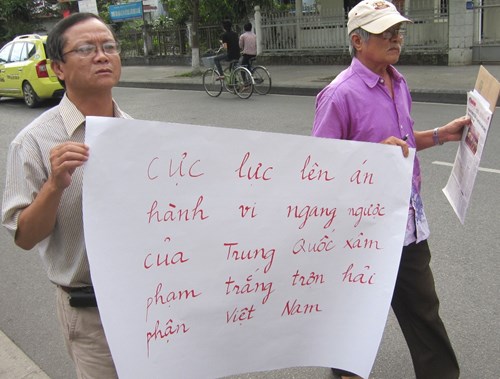 Cực lực lên án
hành vi ngang ngược
của Trung Quốc xâm
phạm trắng trơn hải
phận Việt Nam